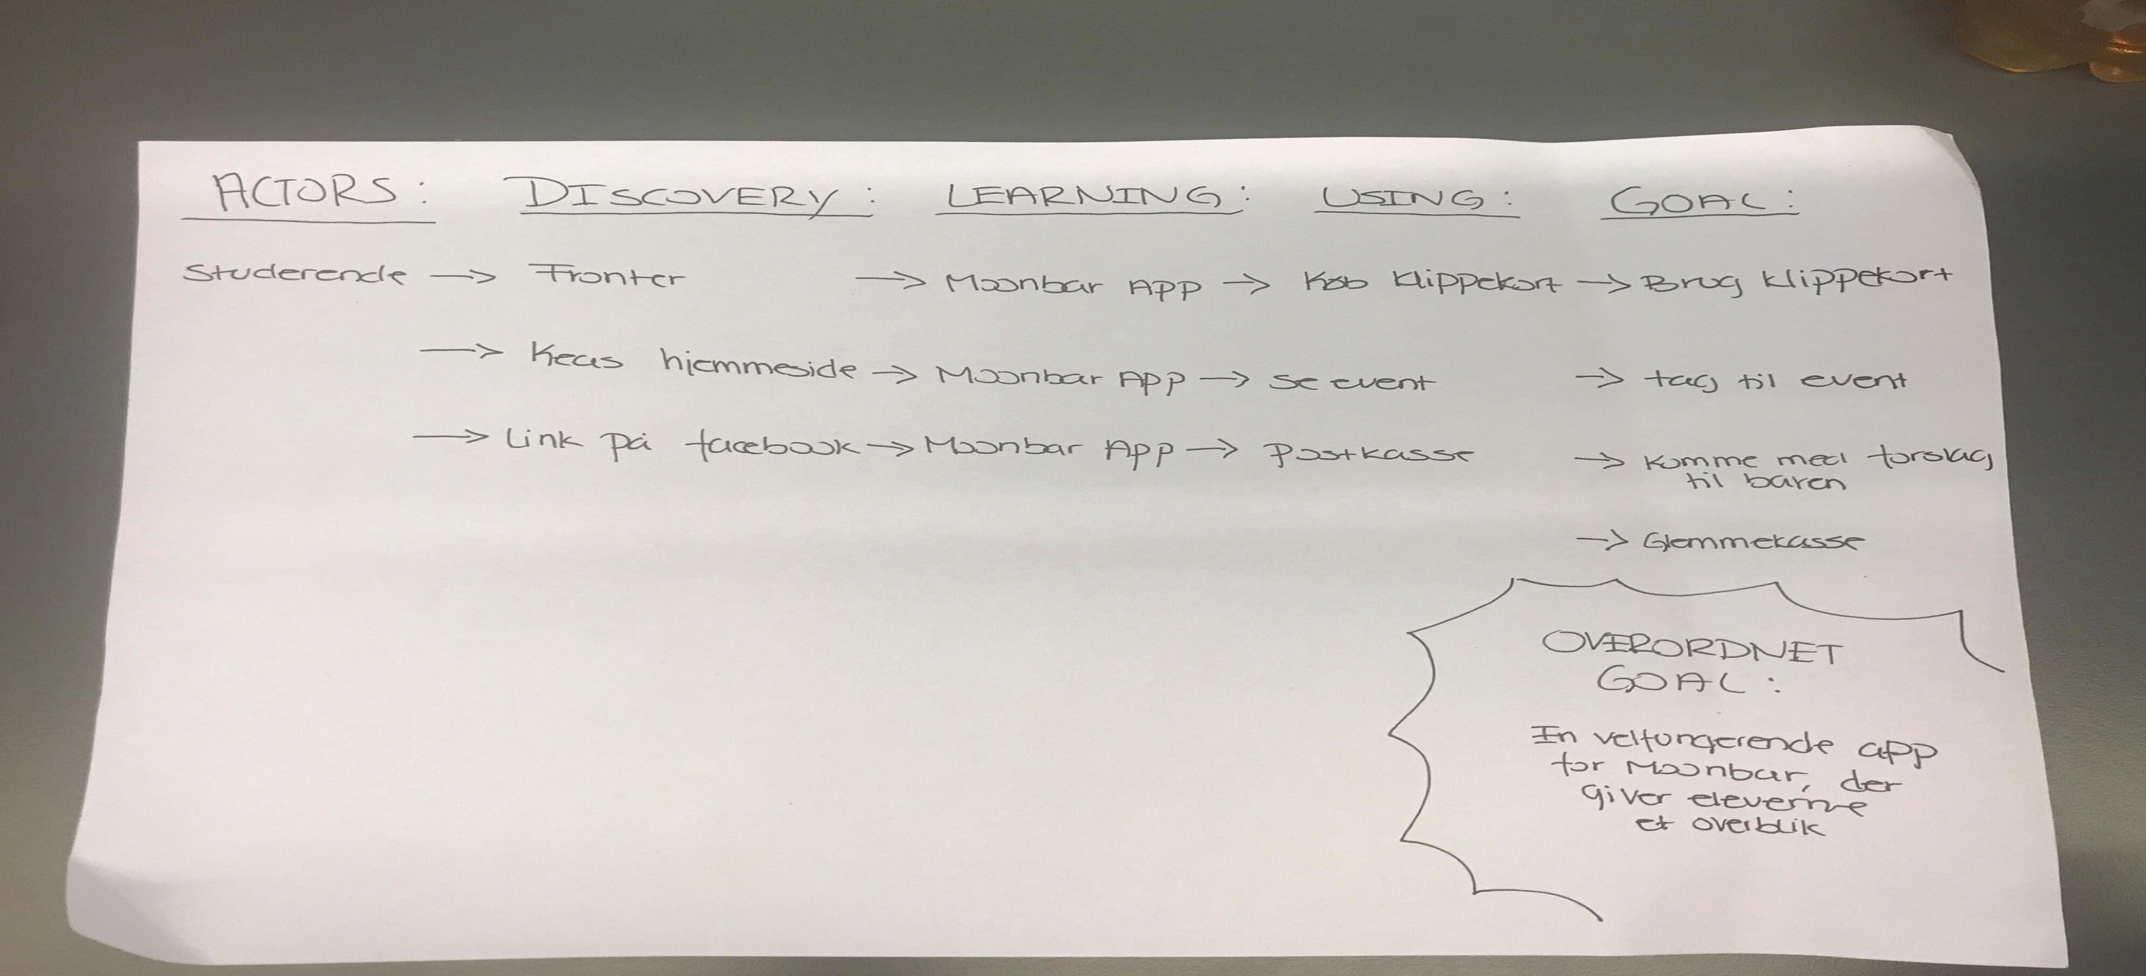 ACTORS: DISCOVERY: LEARNING: USING: GOAL:
Studerende → Fronter → Moonbar App → Køb Klippekort → Brug Klippekort
→ Keas hjemmeside → Moonbar App → Se event → tag til event
→ Link på facebook → Moonbar App → Postkasse → Komme med forslag
til baren
→ Glemmekasse
OVERORDNET
GOAL:
En velfungerende app
for Moonbar, der
giver eleverne
et overblik